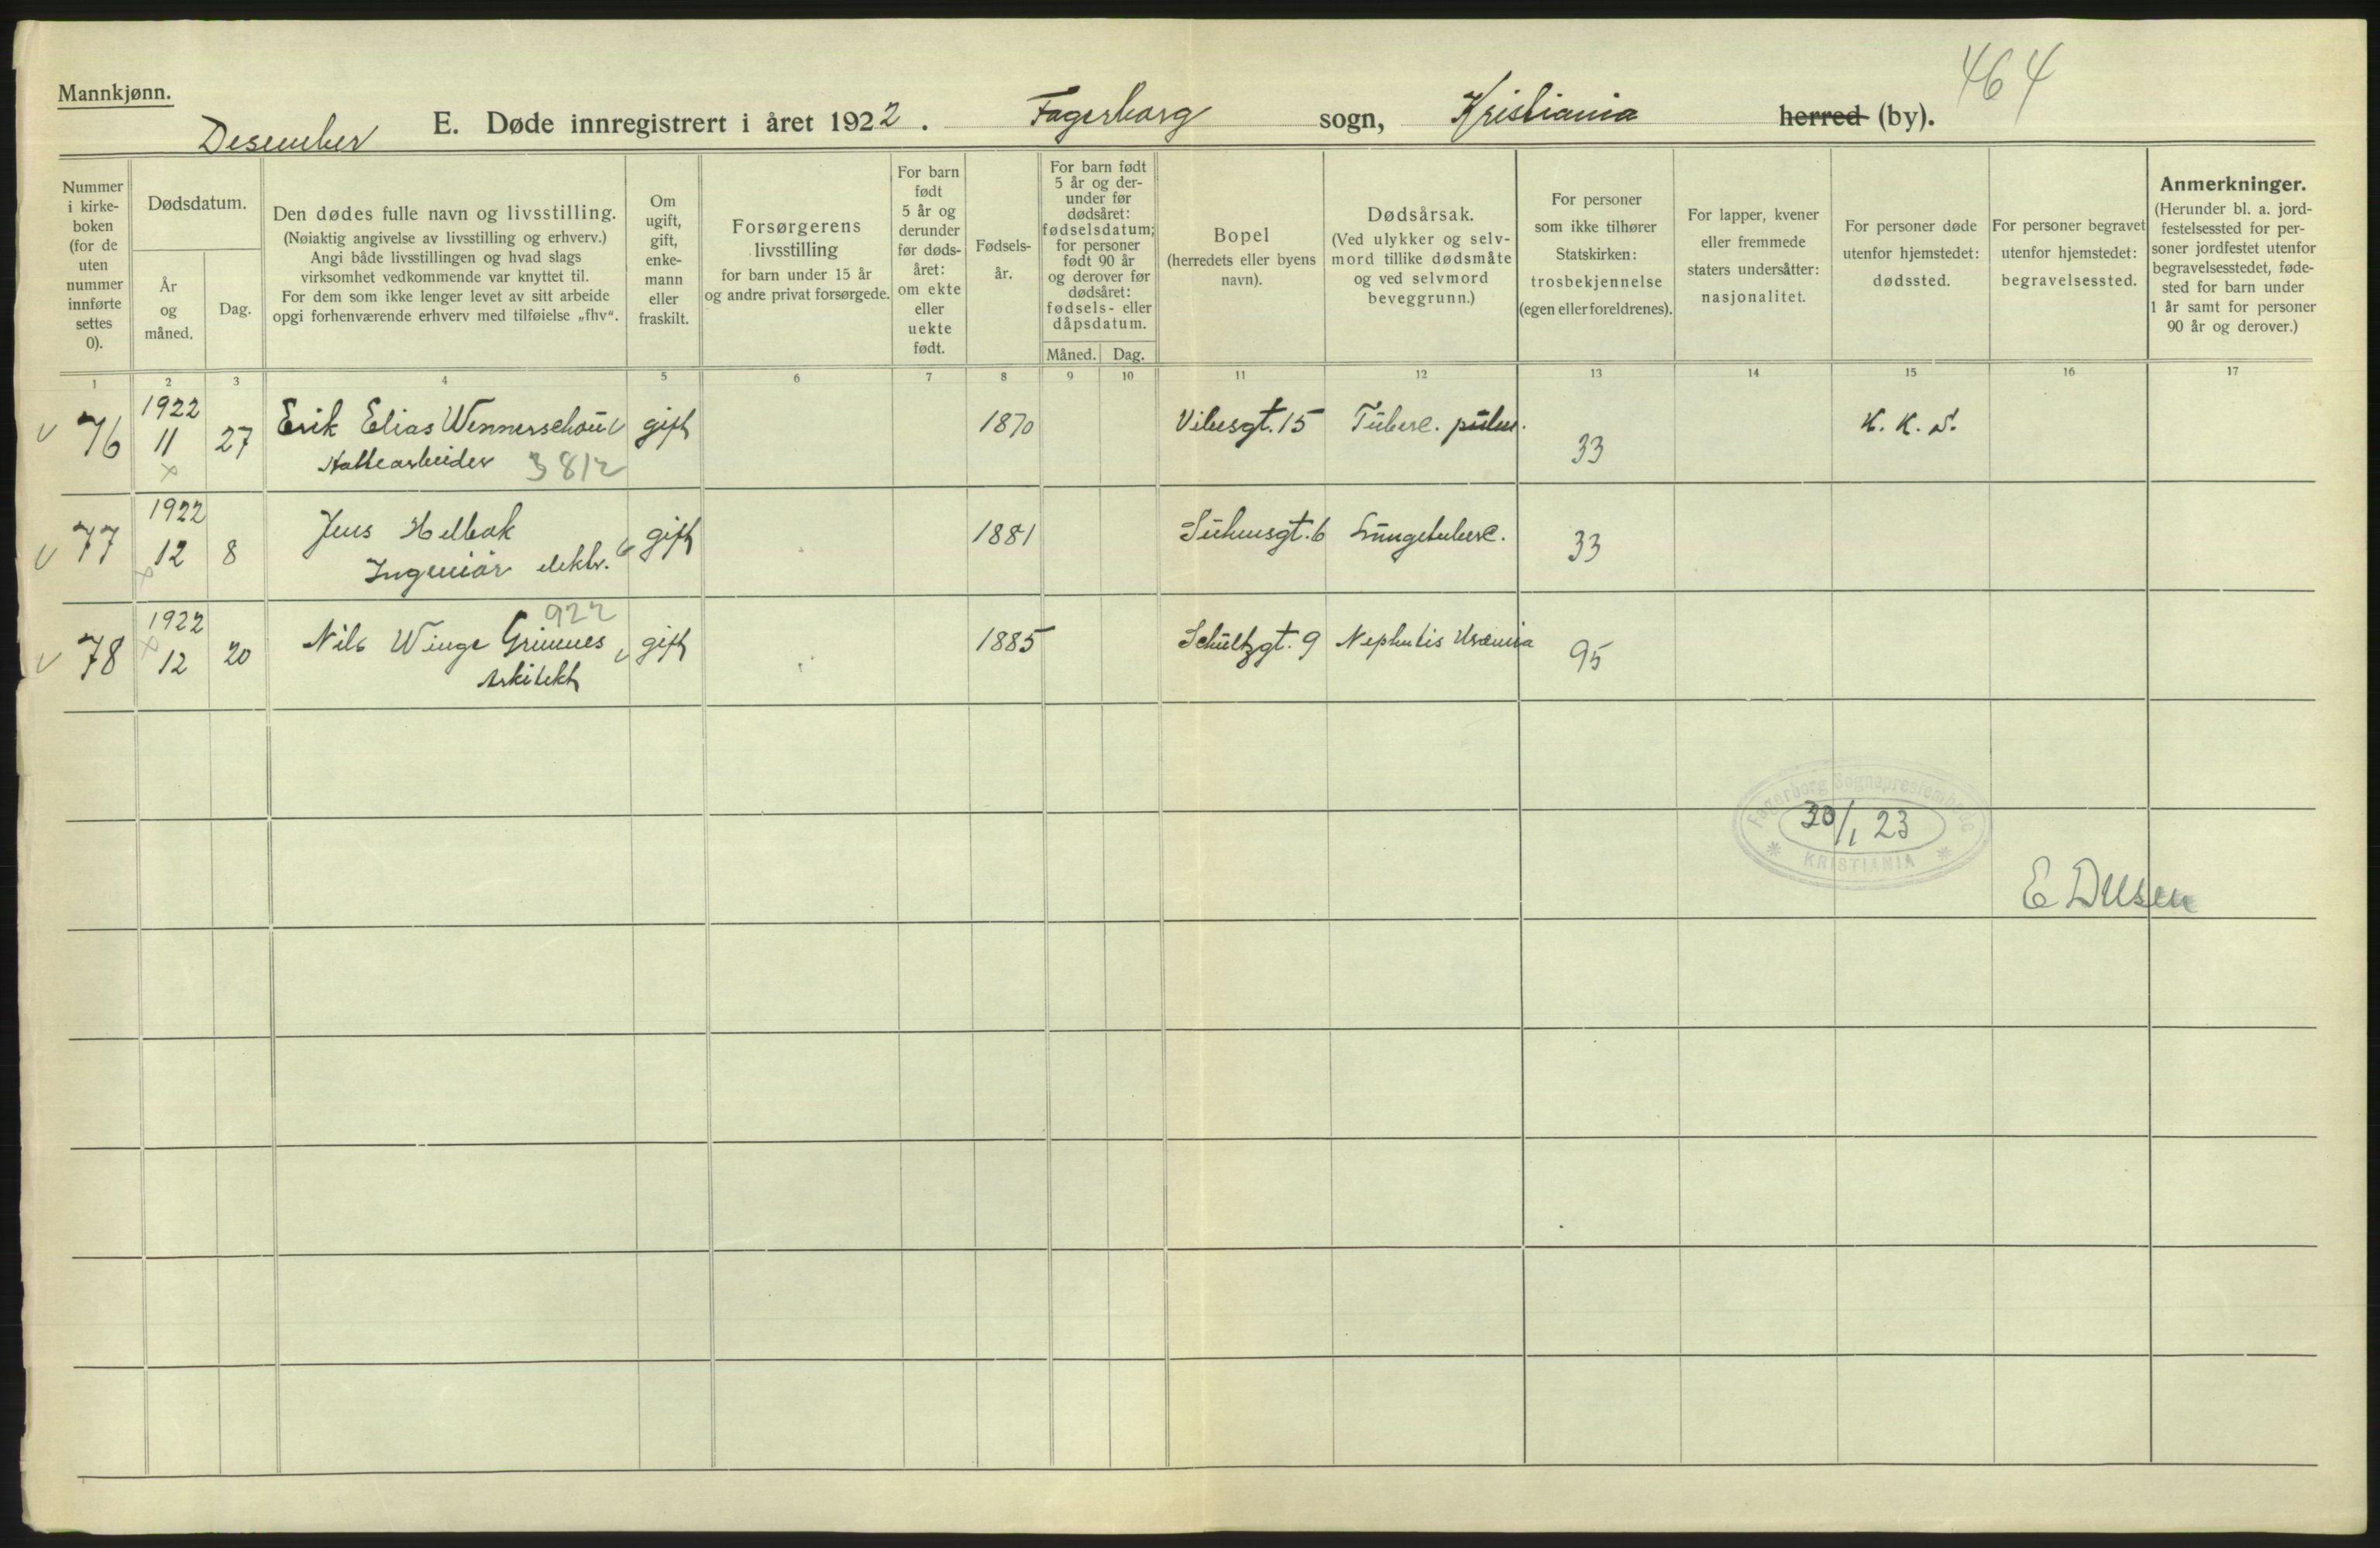 464
Mannkjønn.
Desember E. Døde innregistrert i året 1922. Fagerborg sogn, Kristiania herred (by).
Nummer
i kirke-
boken
(for de
uten
nummer
innførte
settes
0).
Dødsdatum.
År
og
måned.
Dag.
Den dødes fulle navn og livsstilling.
(Nøiaktig angivelse av livsstilling og erhverv.)
Angi både livsstillingen og hvad slags
virksomhet vedkommende var knyttet til.
For dem som ikke lenger levet av sitt arbeide
opgi forhenværende erhverv med tilføielse „fhv“.
Om
ugift,
gift,
enke-
mann
eller
fraskilt.
Forsørgerens
livsstilling
for barn under 15 år
og andre privat forsørgede.
For barn
født
5 år og
derunder
før døds-
året:
om ekte
eller
uekte
født.
Fødsels-
år.
For barn født
5 år og der-
under før
dødsåret:
fødselsdatum;
for personer
født 90 år
og derover før
dødsåret:
fødsels- eller
dåpsdatum.
Måned. Dag.
Bopel
(herredets eller byens
navn).
Dødsårsak.
(Ved ulykker og selv-
mord tillike dødsmåte
og ved selvmord
beveggrunn.)
For personer
som ikke tilhører
Statskirken:
trosbekjennelse
(egen eller foreldrenes).
For lapper, kvener
eller fremmede
staters undersåtter:
nasjonalitet.
For personer døde
utenfor hjemstedet:
dødssted.
For personer begravet
utenfor hjemstedet:
begravelsessted.
Anmerkninger.
(Herunder bl. a. jord-
festelsessted for per-
soner jordfestet utenfor
begravelsesstedet, føde-
sted for barn under
1 år samt for personer
90 år og derover.)
1 2 3 4 5 6 7 8 9 10 11 12 13 14 15 16 17
1922
76 11 27 Erik Elias Wennerschou gift 1870 Vibesgt. 15 Tuberc. pulm. 33 K. K. S.
x 3812
1922
77 12 8 Jens Helbak gift 1881 Suhmsgt. 6 Lungetuberc. 33
x Ingeniør elektr.
1922 922
78 x 12 20 Nils Winge Grimnes gift 1885 Schultzgt. 9 Nephritis Uræmia 95
Arkitekt
Fagerborg Sogneprestembede
30/1 23
* KRISTIANIA *